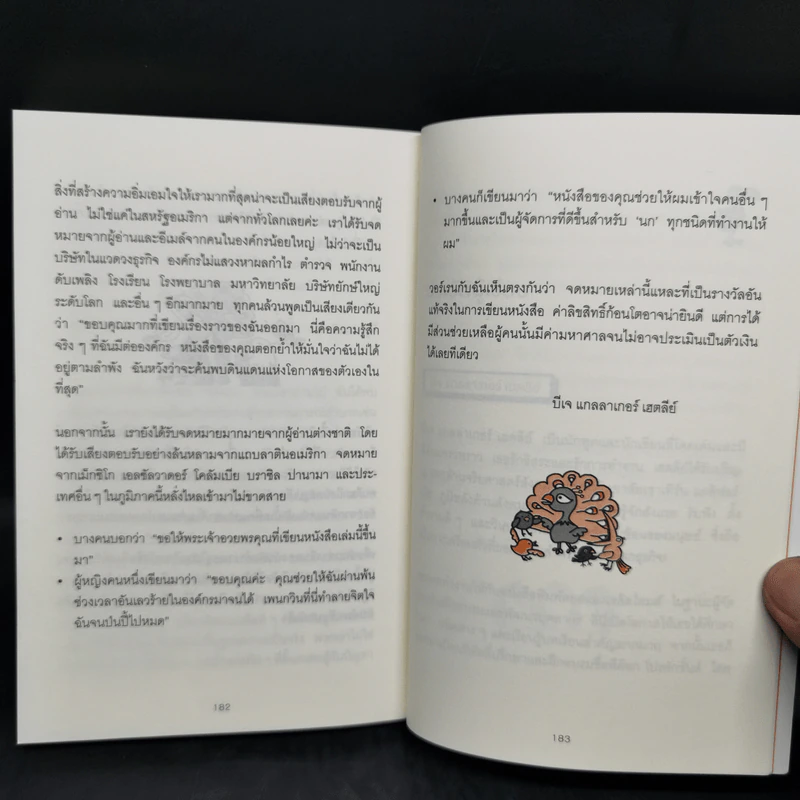 สิ่งที่สร้างความอิ่มเอมใจให้เรามากที่สุดน่าจะเป็นเสียงตอบรับจากผู้
อ่าน ไม่ใช่แค่ในสหรัฐอเมริกา แต่จากทั่วโลกเลยค่ะ เราได้รับจด
หมายจากผู้อ่านและอีเมล์จากคนในองค์กรน้อยใหญ่ ไม่ว่าจะเป็น
บริษัทในแวดวงธุรกิจ องค์กรไม่แสวงหาผลกำไร ตำรวจ พนักงาน
ดับเพลิง โรงเรียน โรงพยาบาล มหาวิทยาลัย บริษัทยักษ์ใหญ่
ระดับโลก และอื่น ๆ อีกมากมาย ทุกคนล้วนพูดเป็นเสียงเดียวกัน
ว่า “ขอบคุณมากที่เขียนเรื่องราวของฉันออกมา นี่คือความรู้สึก
จริง ๆ ที่ฉันมีต่อองค์กร หนังสือของคุณตอกย้ำให้มั่นใจว่าฉันไม่ได้
อยู่ตามลำพัง ฉันหวังว่าจะค้นพบดินแดนแห่งโอกาสของตัวเองใน
ที่สุด”
นอกจากนั้น เรายังได้รับจดหมายมากมายจากผู้อ่านต่างชาติ โดย
ได้รับเสียงตอบรับอย่างล้นหลามจากแถบลาตินอเมริกา จดหมาย
จากเม็กซิโก เอลซัลวาดอร์ โคลัมเบีย บราซิล ปานามา และประ-
เทศอื่น ๆ ในภูมิภาคนี้หลั่งไหลเข้ามาไม่ขาดสาย
• บางคนบอกว่า “ขอให้พระเจ้าอวยพรคุณที่เขียนหนังสือเล่มนี้ขึ้น
มา”
• ผู้หญิงคนหนึ่งเขียนมาว่า “ขอบคุณค่ะ คุณช่วยให้ฉันผ่านพ้น
ช่วงเวลาอันเลวร้ายในองค์กรมาจนได้ เพนกวินที่นี่ทำลายจิตใจ
ฉันจนป่นปี้ไปหมด”
182
• บางคนก็เขียนมาว่า “หนังสือของคุณช่วยให้ผมเข้าใจคนอื่น ๆ
มากขึ้นและเป็นผู้จัดการที่ดีขึ้นสำหรับ ‘นก’ ทุกชนิดที่ทำงานให้
ผม”
วอร์เรนกับฉันเห็นตรงกันว่า จดหมายเหล่านี้แหละที่เป็นรางวัลอัน
แท้จริงในการเขียนหนังสือ ค่าลิขสิทธิ์ก้อนโตอาจน่ายินดี แต่การได้
มีส่วนช่วยเหลือผู้คนนั้นมีค่ามหาศาลจนไม่อาจประเมินเป็นตัวเงิน
ได้เลยทีเดียว
บีเจ แกลลาเกอร์ เฮตลีย์
183